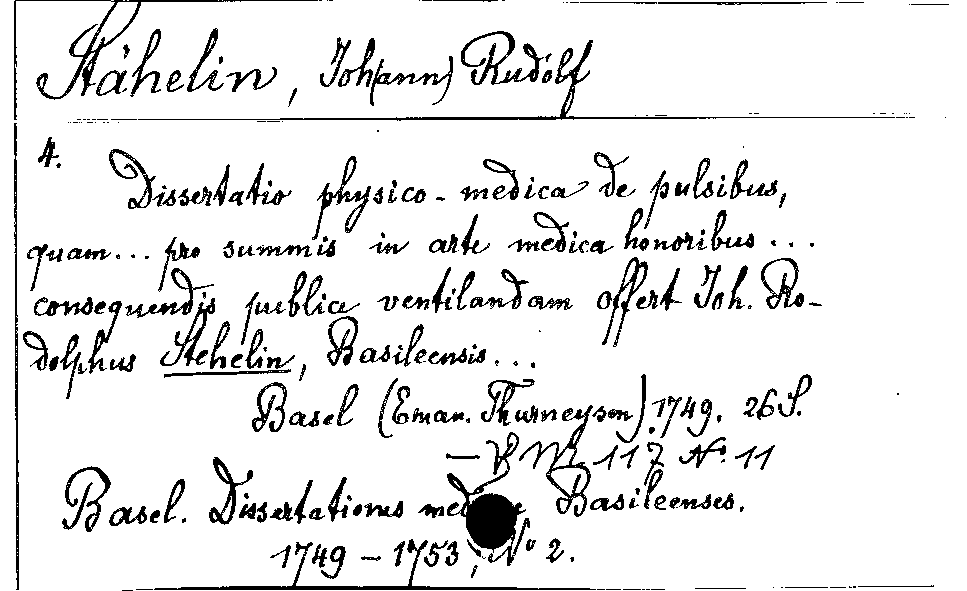 Stähelin, Joh(ann) Rudolf
4.
Dissertatio physico-medica de pulsibus,
quam... pro summis in arte medica honoribus ...
consequendis publice ventilandam offert Joh. Ro-
dolphus Stehelin, Basileensis...
Basel (Eman. Thurneysen). 1749. 26 S.
117 No. 11
Basel. Dissertationes Basileenses.
1749 – 1753, No 2.